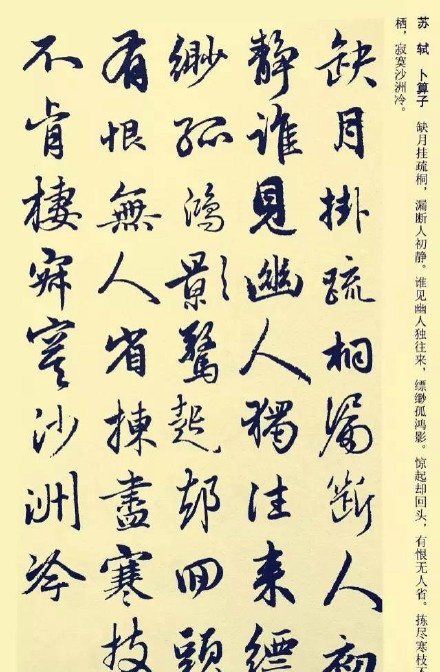 苏轼 卜算子 缺月挂疏桐，漏断人初静。谁见幽人独往来，缥缈孤鸿影。惊起却回头，有恨无人省。拣尽寒枝不
栖，寂寞沙洲冷。
缺月掛疏桐漏断人初
静誰見幽人獨往来縹
緲孤鴻影驚起却回頭
有恨無人省揀盡寒枝
不肯棲寂寞沙洲冷